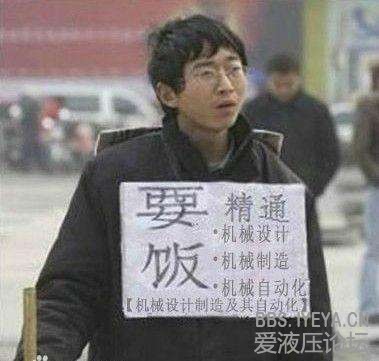 要饭
精通
·机械设计
·机械制造
·机械自动化
【机械设计制造及其自动化】
BBS.IYEYA.CN
爱液压论坛